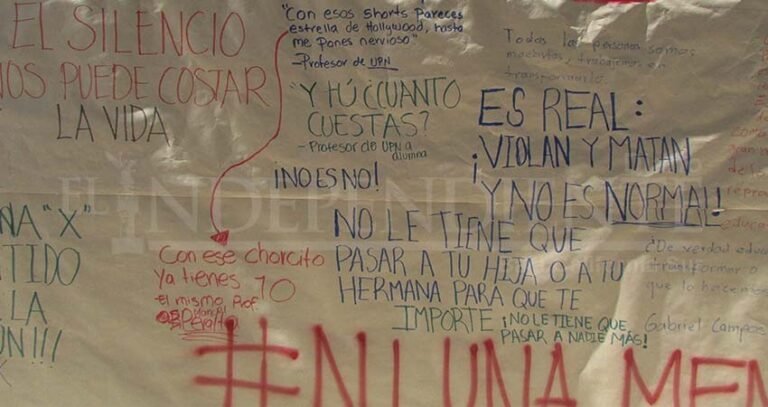 EL SILENCIO
NOS PUEDE COSTAR
LA VIDA
"Con esos shorts pareces
estrella de Hollywood, hasta
me pones nervioso"
-Profesor de UPN
"Y TÚ ¿CUANTO
CUESTAS?
- Profesor de UPN a
alumna
¡NO ES NO!
Todas las personas somos
en
transformarlo.
ES REAL:
¡VIOLAN Y MATAN
Y NO ES NORMAL!
NO LE TIENE QUE
PASAR A TU HIJA O A TU
HERMANA PARA QUE TE
IMPORTE
¡NO LE TIENE QUE
PASAR A NADIE MÁS!
Con ese chorcito
Ya tienes 10
- El mismo Prof.
Peralta
NA "X"
TIDO
LA
ÚN!!!
X
¿De verdad edu
transformar o
que lo hacemos
Gabriel Campos
#NI UNA MEN
EL INDEPENDI